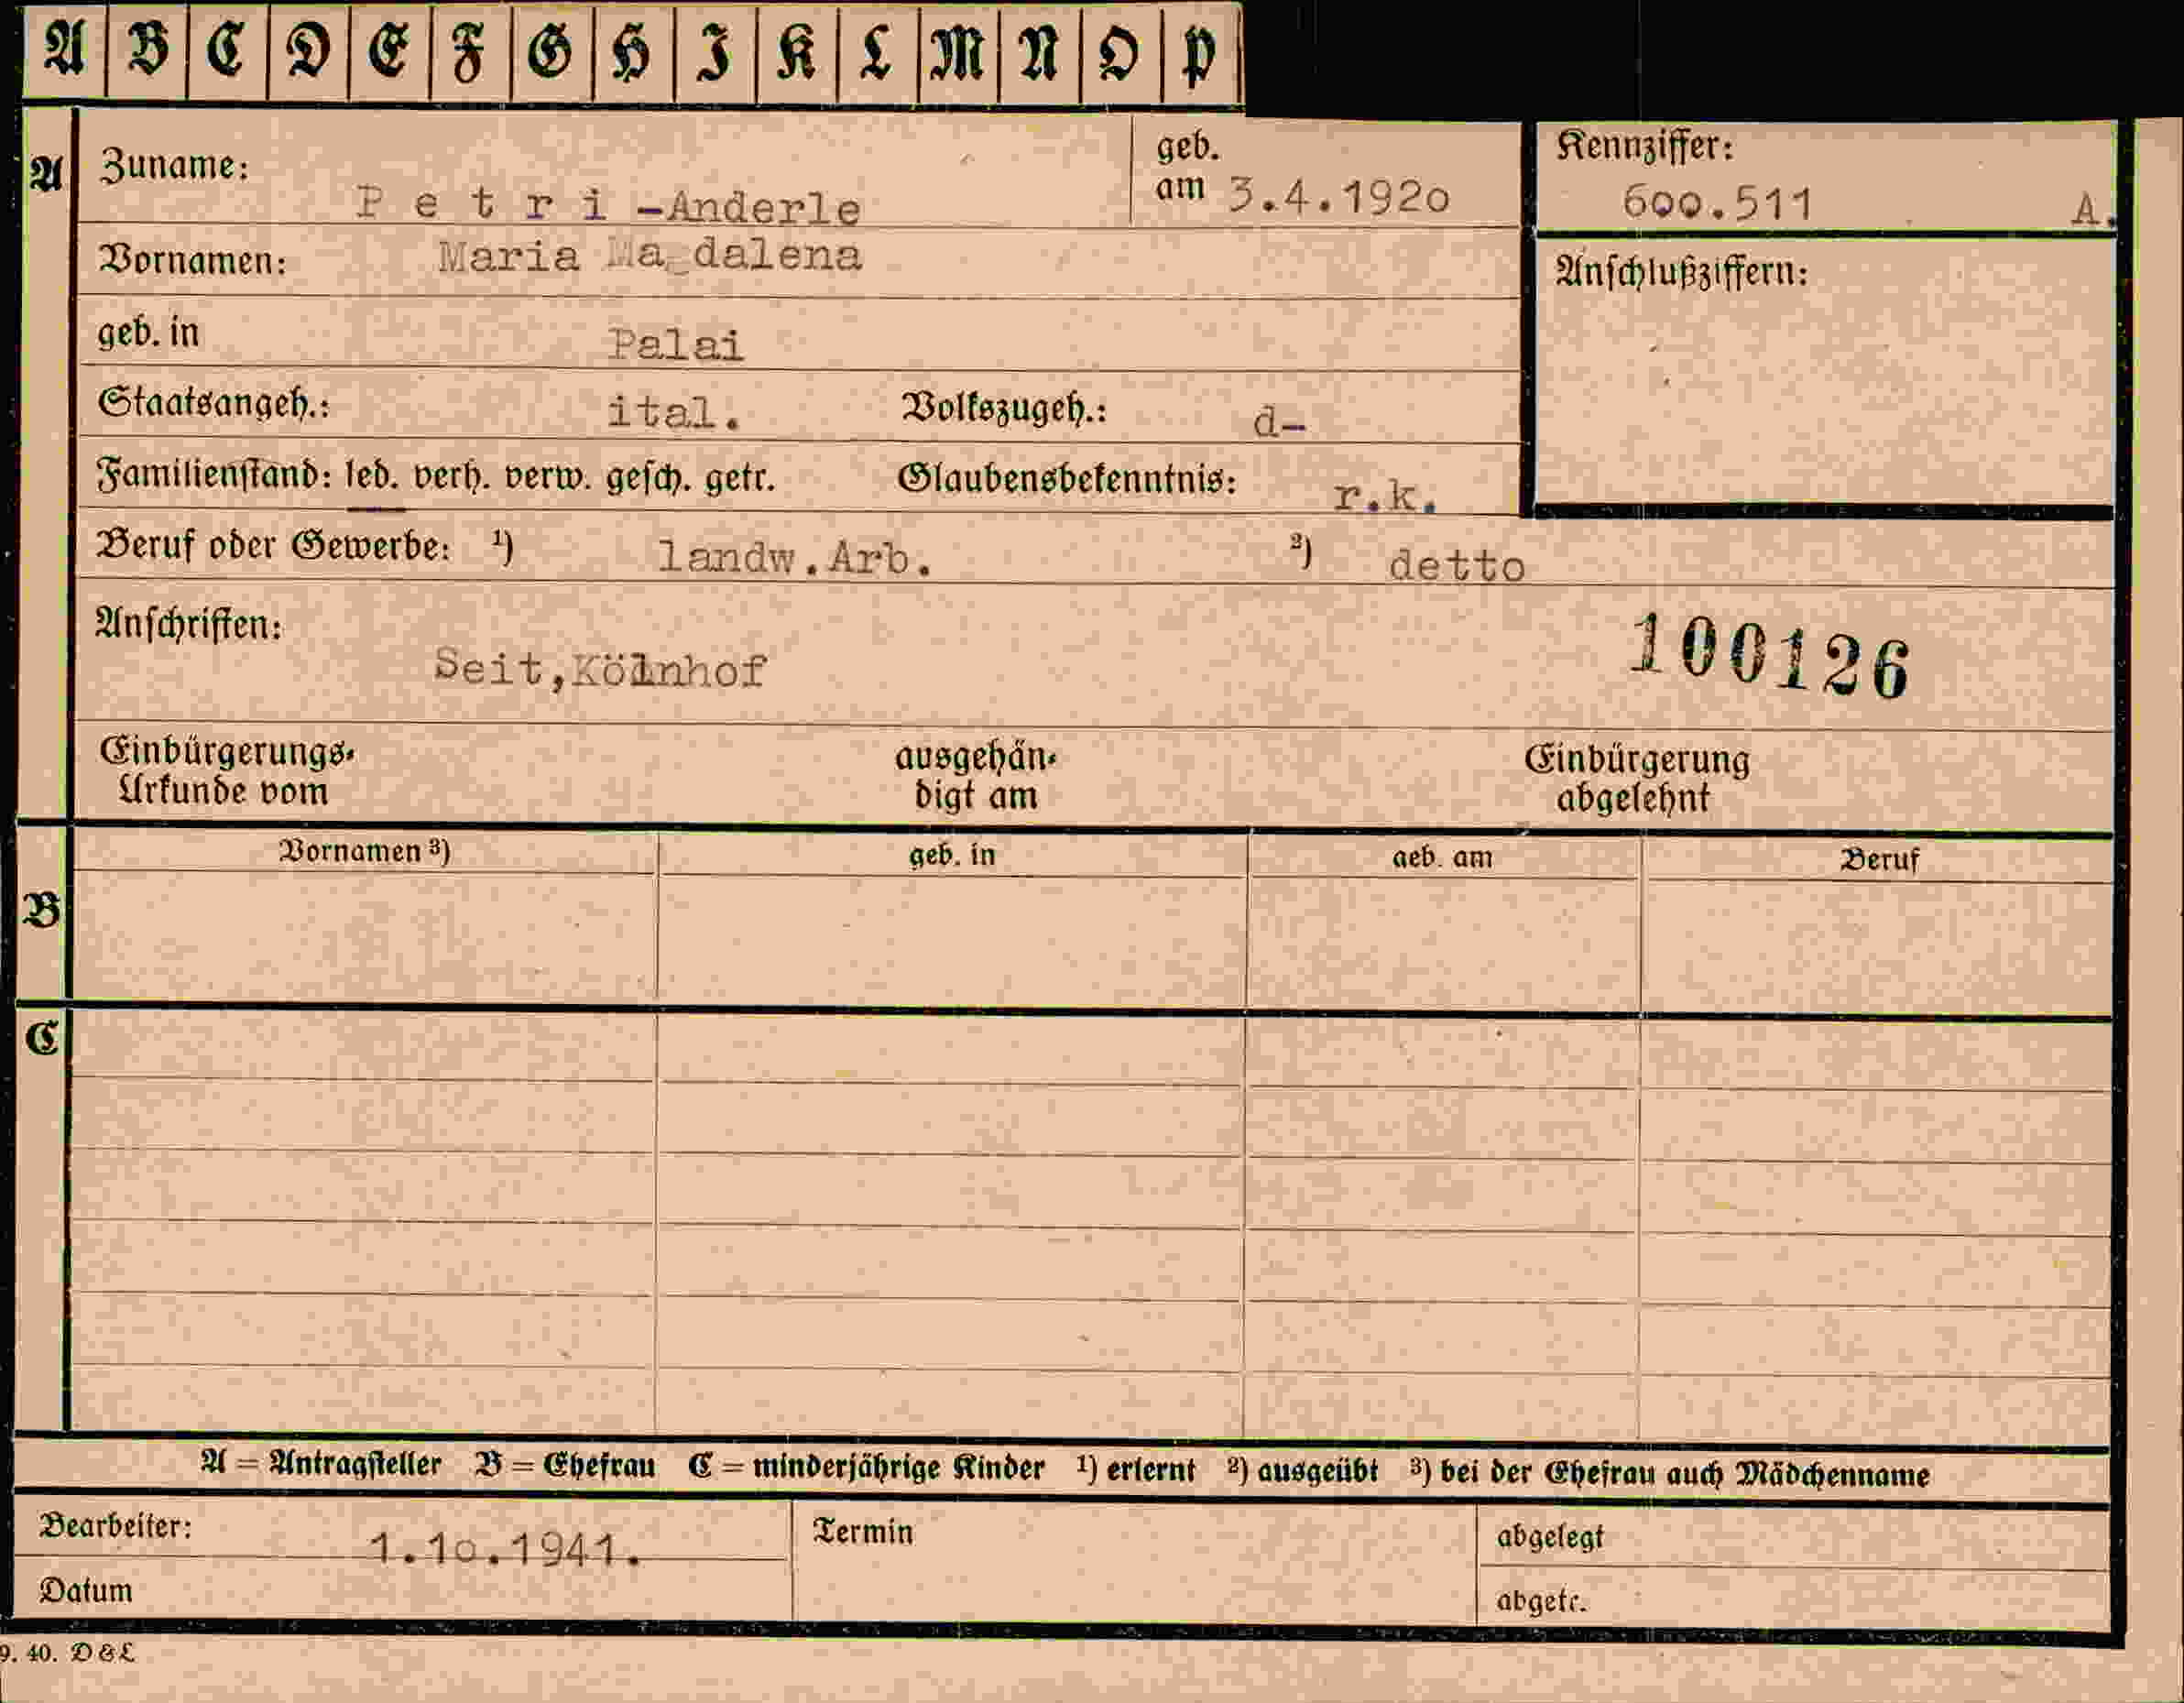 A B C D E F G H I K L M N O P
A Zuname: P e t r i -Anderle geb. am 3.4.1920 Kennziffer: 600.511 A.
Vornamen: Maria Ma dalena Anschlußziffern:
geb. in Palai
Staatsangeh.: ital. Volkszugeh.: d-
Familienstand: led. verh. verw. gesch. getr. Glaubensbekenntnis: r.k.
Beruf oder Gewerbe: ¹) landw.Arb. ²) detto
Anschriften: 100126
Seit,Kölnhof
Einbürgerungs- ausgehän- Einbürgerung
Urkunde vom digt am abgelehnt
Vornamen ³) geb. in geb. am Beruf
B
C
A = Antragsteller B = Ehefrau C = minderjährige Kinder ¹) erlernt ²) ausgeübt ³) bei der Ehefrau auch Mädchenname
Bearbeiter: 1.10.1941. Termin abgelegt
Datum abgetr.
9. 40. D & L